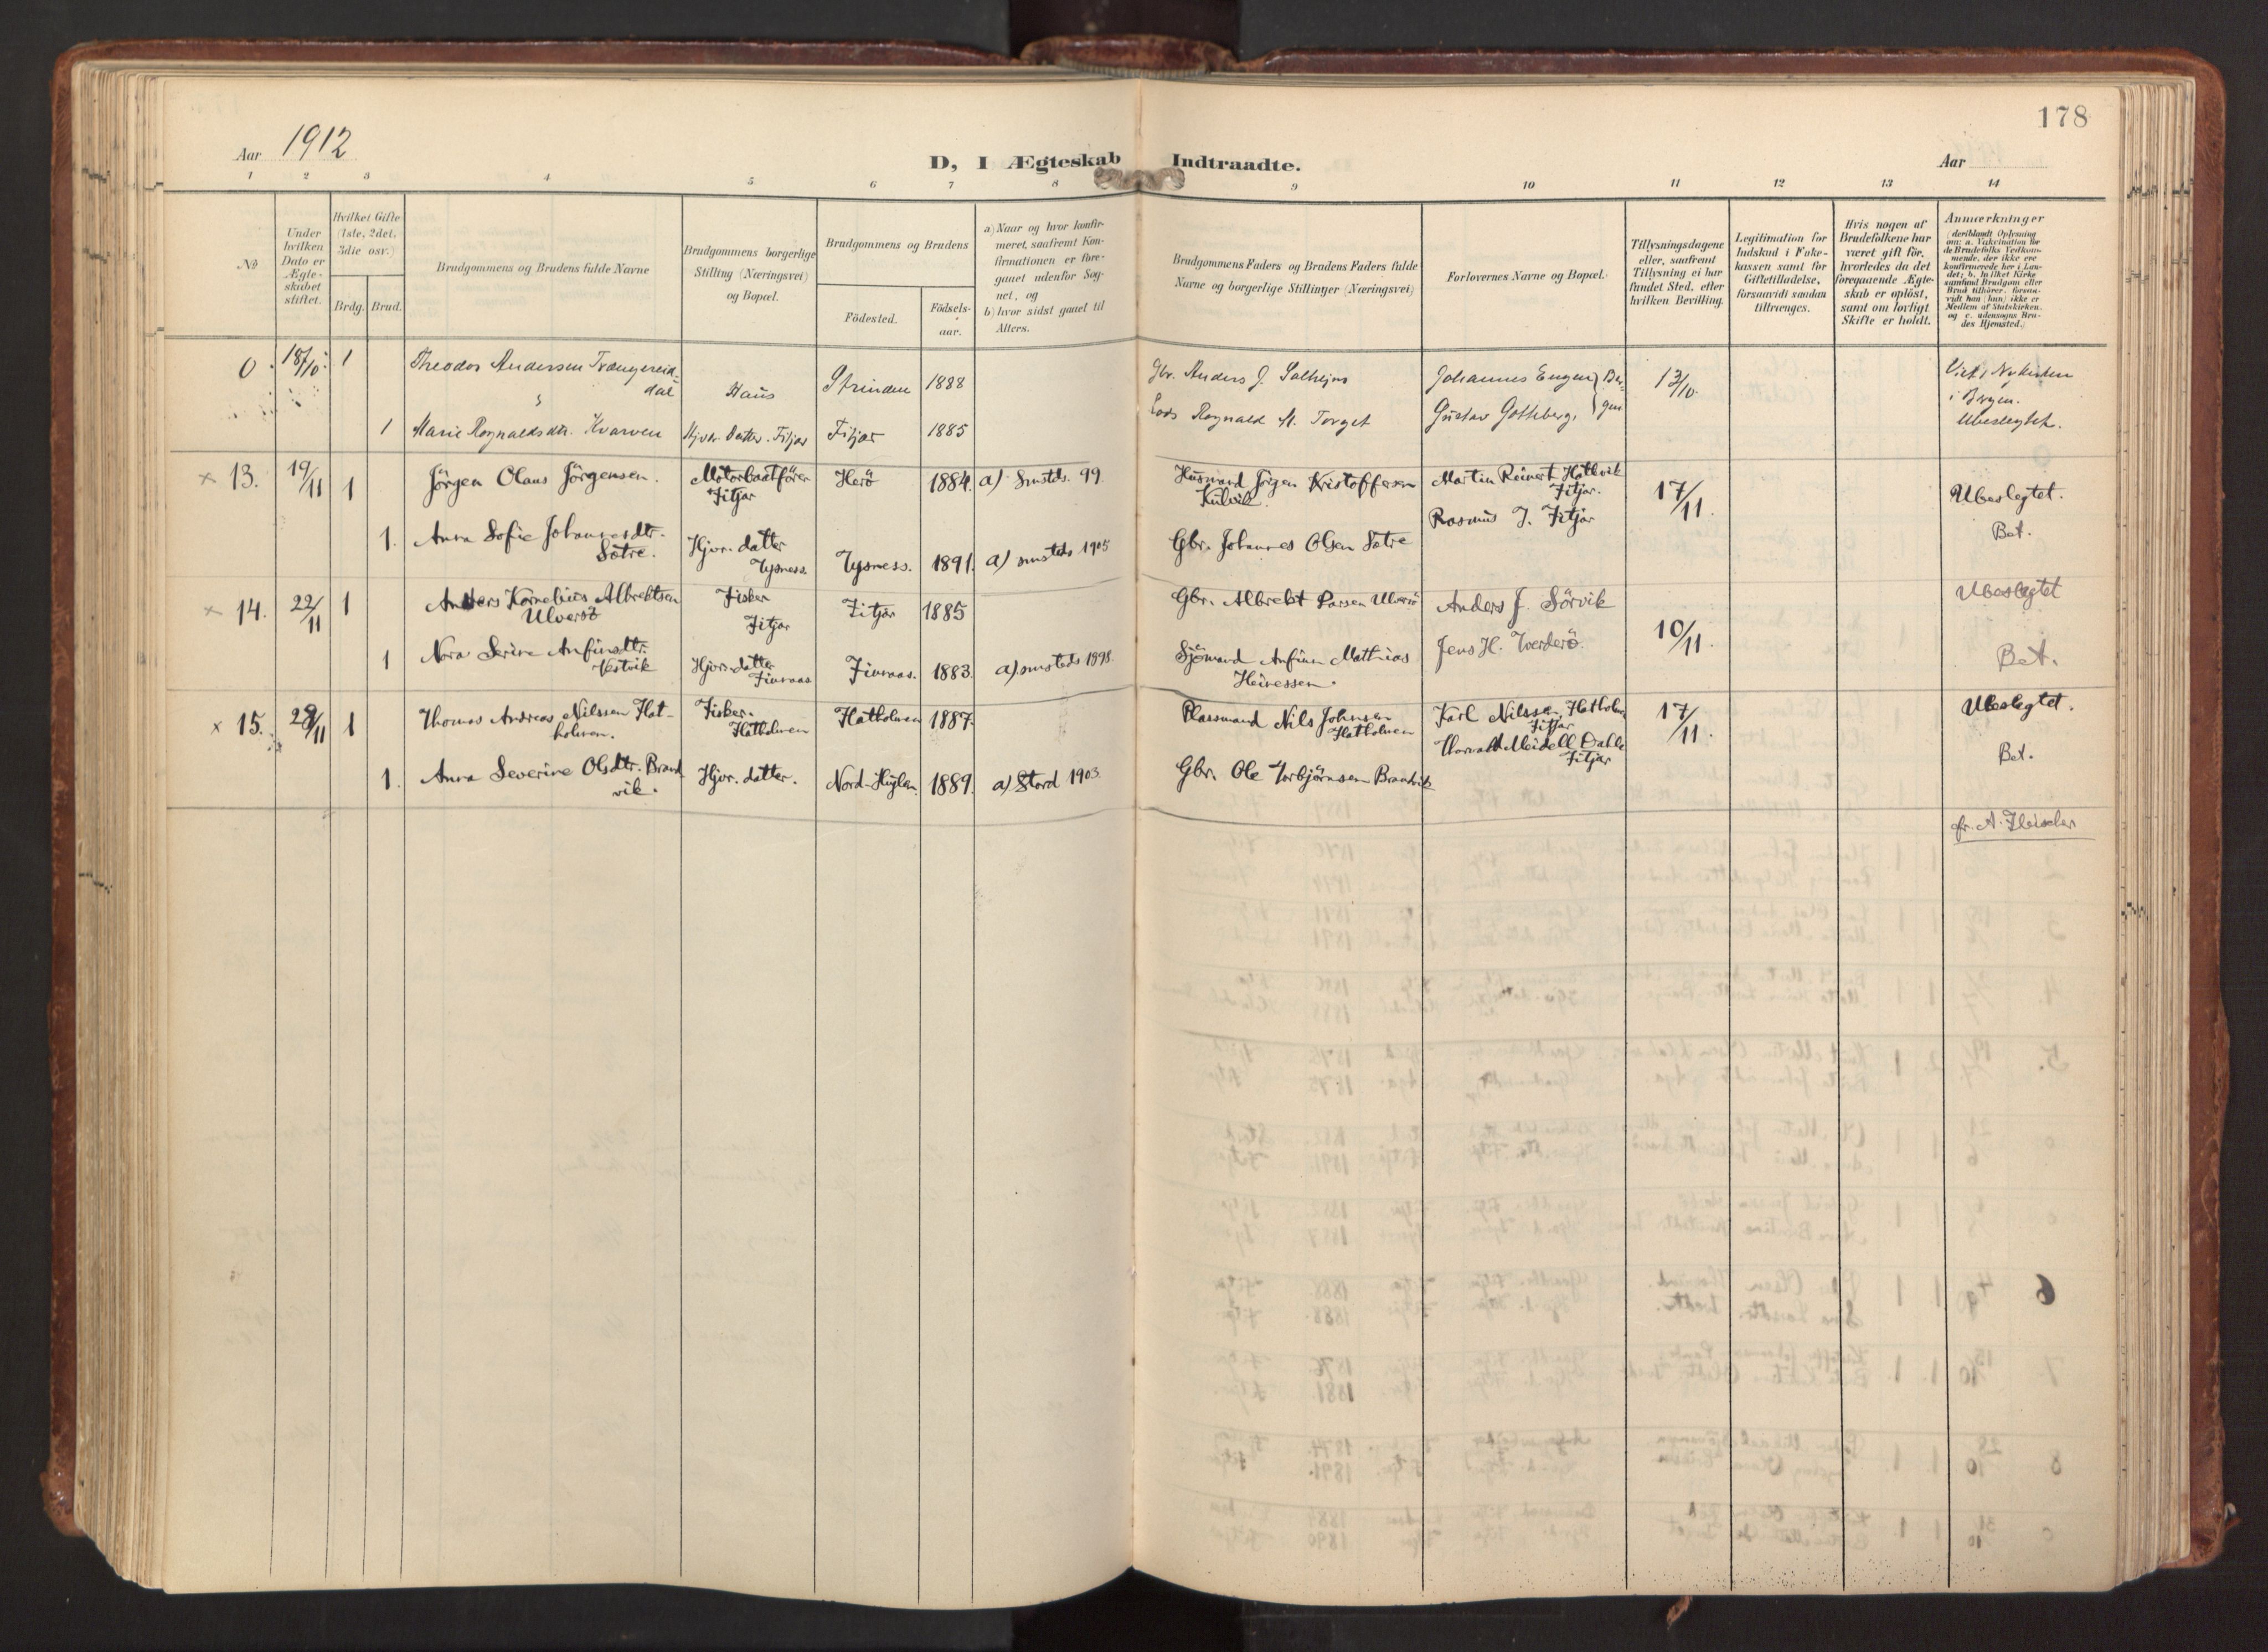 178
Aar 1912
D, I Ægteskab Indtraadte.
Aar
1 2 3 4 5 6 7 8 9 10 11 12 13 14
No
Under hvilken Dato er Ægte-skabet stiftet.
Hvilket Gifte (1ste, 2det, 3die osv.)
Brdg. Brud.
Brudgommens og Brudens fulde Navne
Brudgommens borgerlige Stilling (Næringsvei) og Bopæl.
Brudgommens og Brudens
Födested.
Födsels-aar.
a) Naar og hvor konfir-
meret, saafremt Kon-
firmationen er fore-
gaaet udenfor Sog-
net, og
b) hvor sidst gaaet til
Alters.
Brudgommens Faders og Brudens Faders fulde
Navne og borgerlige Stillinger (Næringsvei)
Forlovernes Navne og Bopæl.
Tillysningsdagene
eller, saafremt
Tillysning ei har
fundet Sted, efter
hvilken Bevilling.
Legitimation for
Indskud i Enke-
kassen samt for
Giftetilladelse,
forsaavidt saadan
tiltrænges.
Hvis nogen af
Brudefolkene har
været gift för,
hvorledes da det
foregaaende Ægte-
skab er oplöst,
samt om lovligt
Skifte er holdt.
Anmærkninger
(deriblandt Oplysning
om: a. Vakcination for
de Brudefolks Vedkom-
mende, der ikke ere
konfirmerede her i Lan-
det; b. hvilket Kirke-
samfund Brudgom eller
Brud tilhører, forsaa-
vidt han (hun) ikke er
Medlem af Statskirken,
og c. udensogns Bru-
des Hjemsted.)
0. 18/10. 1 Theodor Andersen
dal Haus Strinden 1888 Gbr. Anders J. Johannes Engen } Ber- 13/10. Viet i Nykirken
i Bergen.
1 Marie Ragnaldsdtr. Kvarven Hjvr. datter. Fitjar Fitjar 1885 Lods Ragnald M. Torget Gustav Gottberg, } gen Ubeslegtet.
× 13. 19/11 1 Jörgen Olaus Jörgensen. Motorbaatförer
Fitjar Herö 1884. a) Smstds. 99. Husmand Jörgen Kristoffersen
Martin Reinert Hatlevik
Fitjar.
Rasmus J. Fitjar 17/11. Ubeslegtet.
Bet.
1. Anna Sofie Johannesdtr.
Sötre. Hjvr. datter
Tysness. Tysness. 1891. a) smstds 1905 Gbr. Johannes Olsen Sötre
× 14. 22/11 1 Anders Kornelius Albrektsen
Ulversö Fisker
Fitjar Fitjar 1885 Gbr. Albrekt Larsen Ulversö Anders J. Sörvik 10/11. Ubeslegtet
1 Nora Serine Anfinsdtr.
Vestvik Hjvr. datter
Finnaas Finnaas. 1883. a) smstds 1898. Sjömand Anfinn Mathias
Heinessen. Jens H. Tverderö. Bet.
× 15. 29/11 1 Thomas Andreas Nilssen Hat-
holmen. Fisker.
Hatholmen Hatholmen 1887. Plassmand Nils Johnsen
Hatholmen Karl Nilssen, Hatholm
Fitjar
Thorvald Meidell Dahle
Fitjar 17/11. Ubeslegtet.
Bet.
1. Anna Severine Olsdtr. Brand
vik. Hjvr. datter. Nord-Huglen. 1889. a) Stord 1903. Gbr. Ole Torbjörnsen Brandvik
fr. A. Fleischer